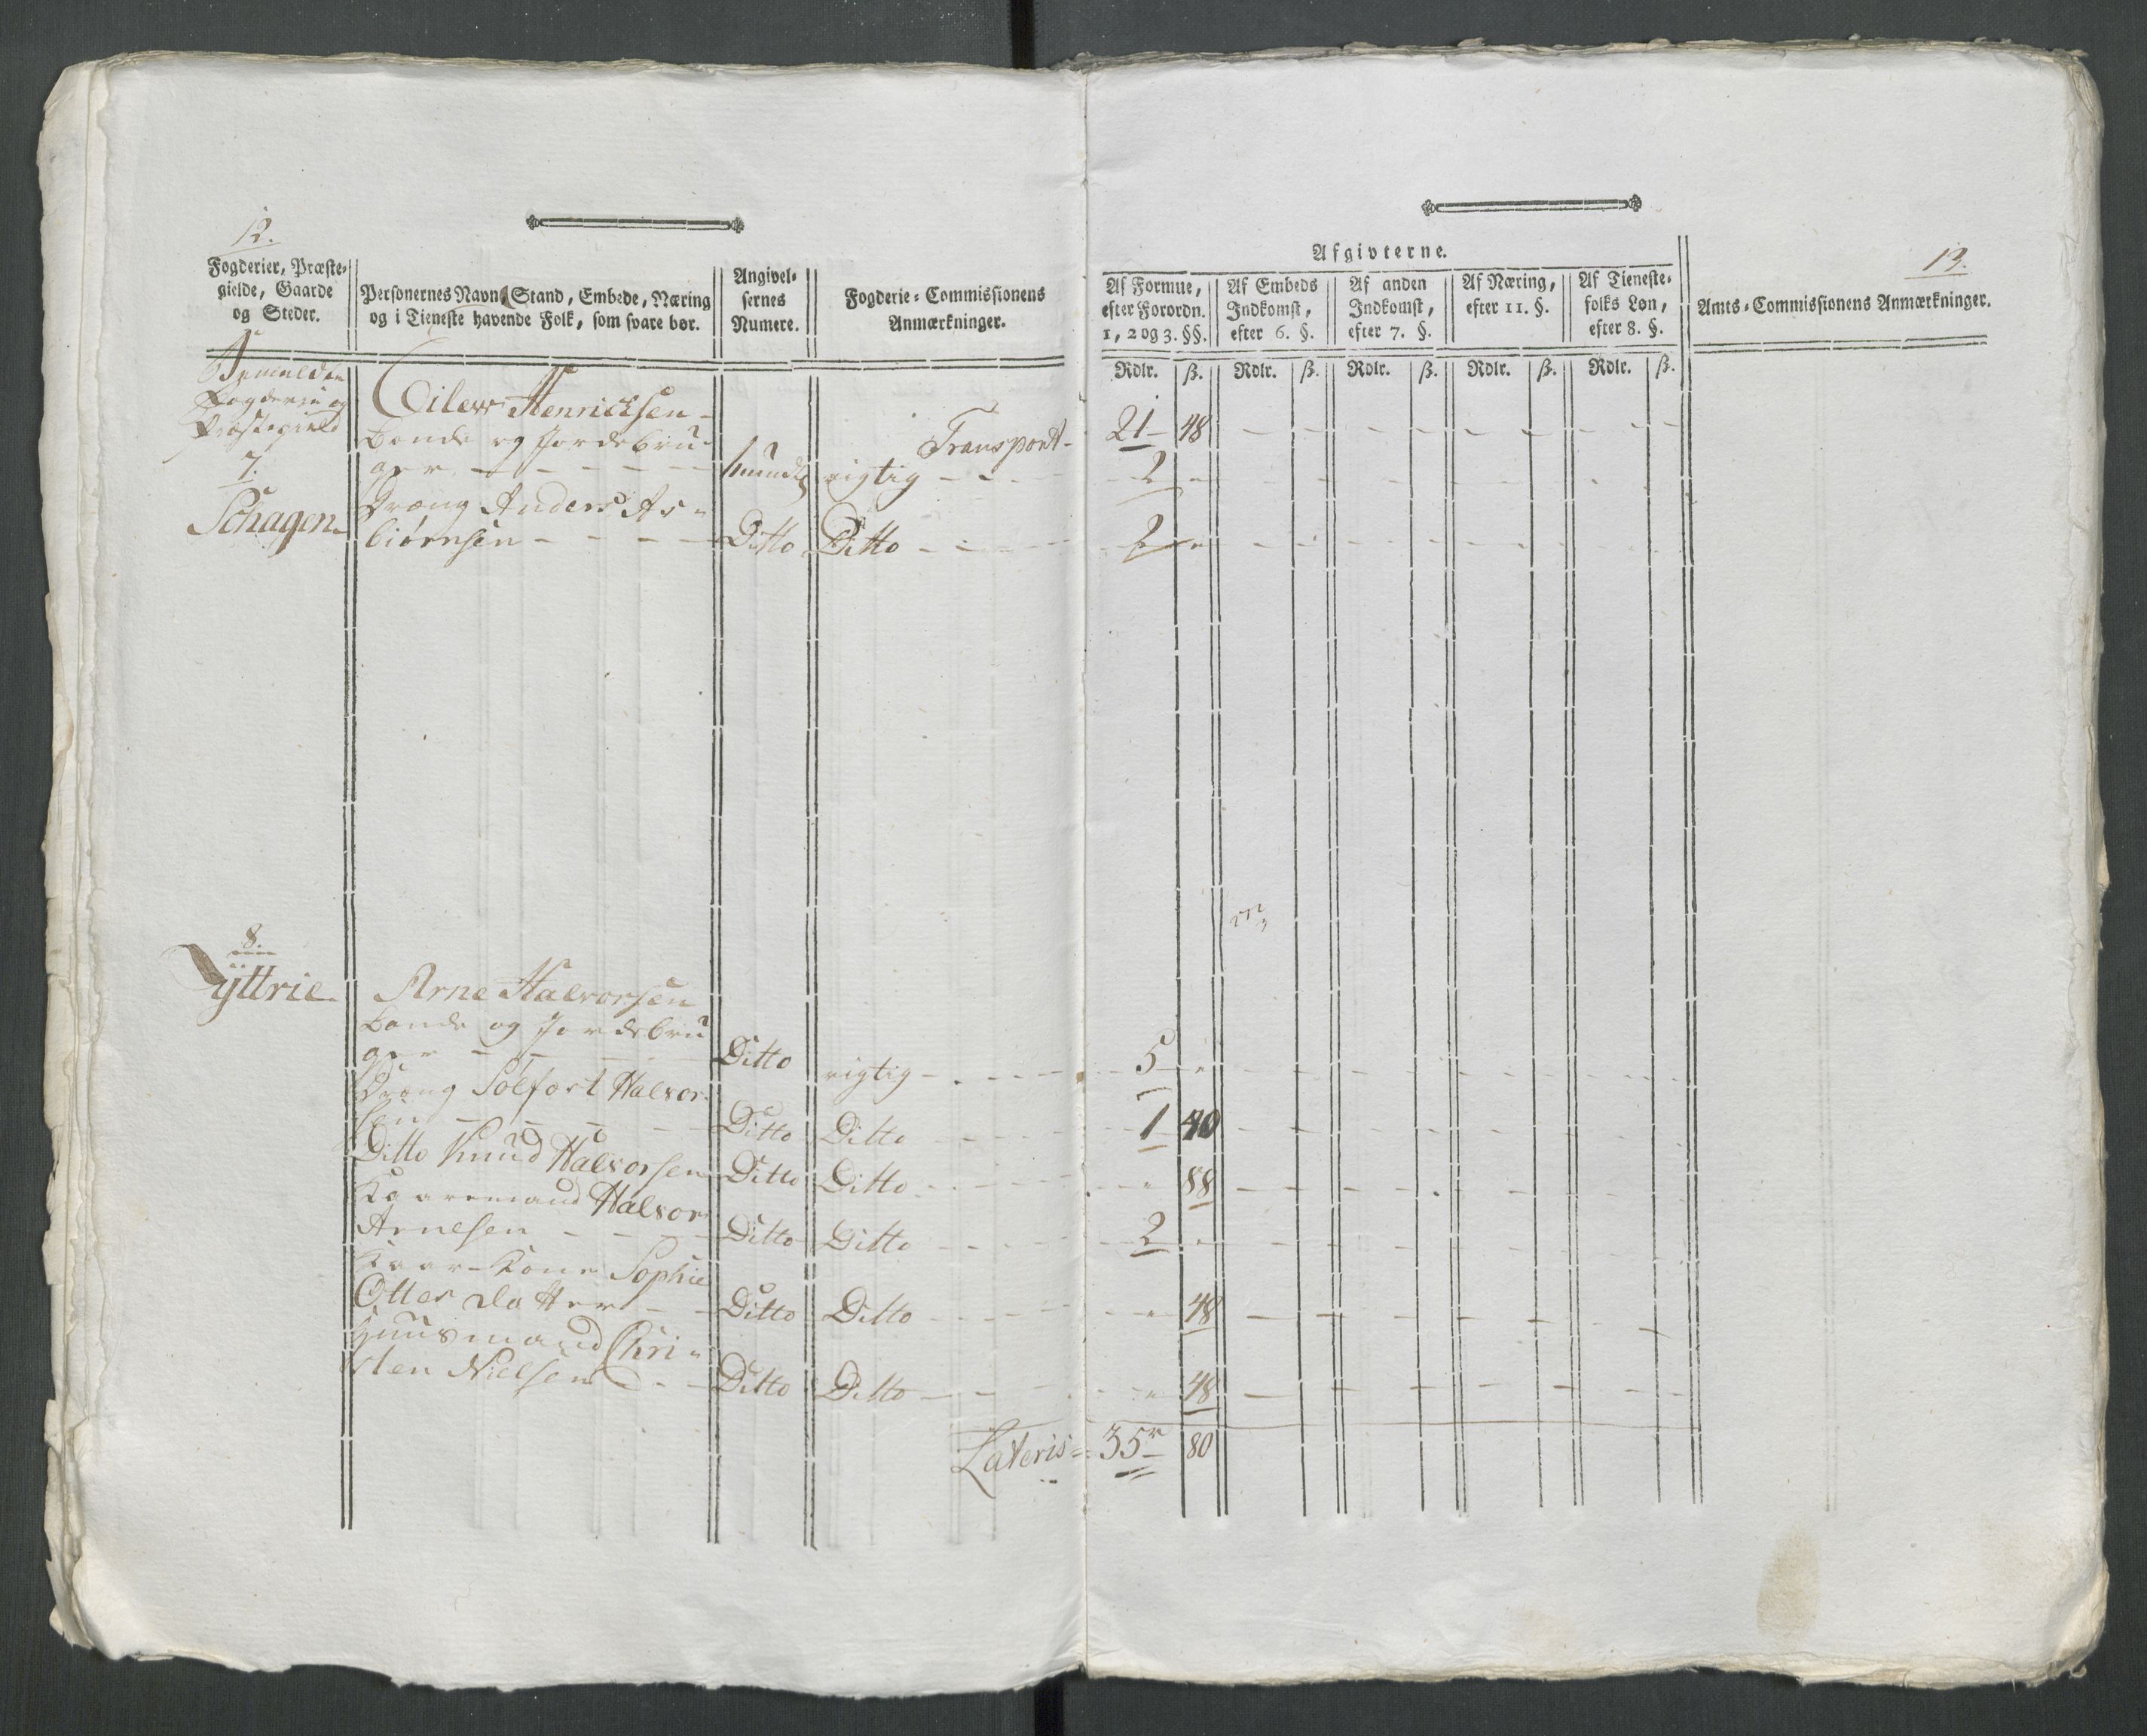 12.
Fogderier, Præste-
gielde, Gaarde
og Steder.
Personernes Navn, Stand, Embede, Næring
og i Tieneste havende Folk, som svare bør.
Angivel-
sernes
Numere.
Fogderie-Commissionens
Anmærkninger.
Bemeldte
Fogderie og
Præstegield
7.
Schagen.
Eilerr Henricksen
Bonde og Jordebru-
ger
mundtl rigtig
Transport
Dræng Anders As-
biørnsen Ditto Ditto
8.
Ÿttrie.
Arne Halvorsen
Bonde og Jordebru
ger Ditto rigtig
Dræng Solfort Halvor-
sen Ditto Ditto
Ditto Knud Halvorsen Ditto Ditto
Kaaremand Halvor
Arnesen Ditto Ditto
Kaar-Kone Sophie
Ottersdatter Ditto Ditto
Huusmand Chri-
sten Nielsen Ditto Ditto
Lateris
13.
Afgivterne.
Af Formue,
efter Forordn.
1, 2 og 3. §§.
Af Embeds
Indkomst,
efter 6. §.
Af anden
Indkomst,
efter 7. §.
Af Næring,
efter 11. §.
Af Tieneste-
folks Løn,
efter 8. §.
Amts-Commissionens Anmærkninger.
Rdlr. ß. Rdlr. ß. Rdlr. ß. Rdlr. ß. Rdlr. ß.
21 48
2
2
5
1 40
88
2
48
48
35 80